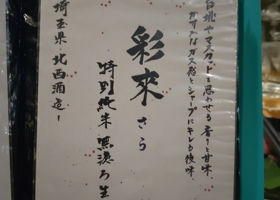 白桃やマスカットを思わせる香りと甘味、
かすかなガス感とシャープにキレる後味。
彩來 さら
特別純米 無濾過生
埼玉県 北西酒造